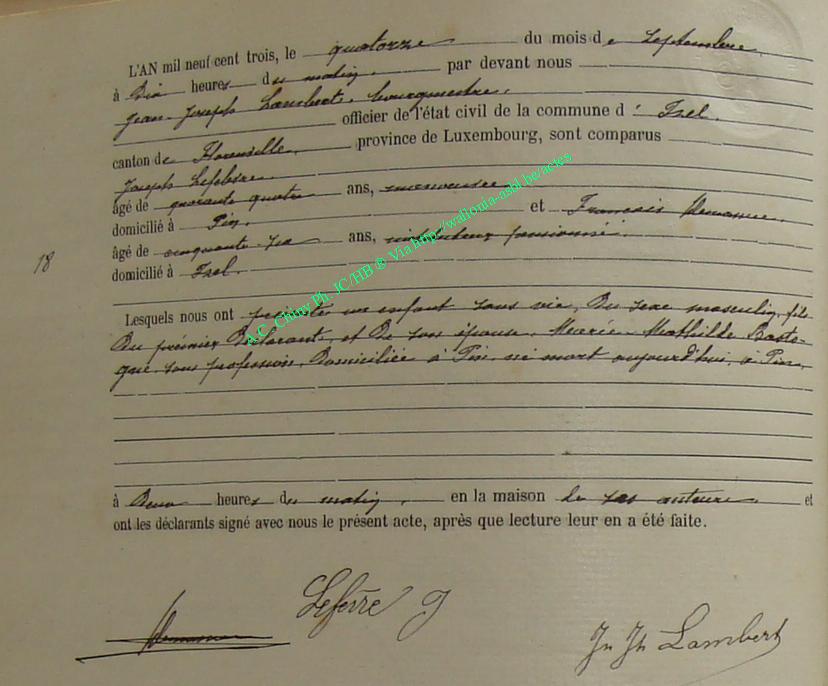 L'AN mil neuf cent trois, le quatorze du mois de Septembre
à Dix heures du matin, par devant nous
Jean-Joseph Lambert, bourgmestre,
officier de l'état civil de la commune d'Izel,
canton de Florenville, province de Luxembourg, sont comparus
Joseph Lefebvre,
âgé de quarante quatre ans,
domicilié à Pin, et François
âgé de cinquante ans, instituteur pensionné,
domicilié à Izel,
18
Lesquels nous ont présenté un enfant sans vie, du sexe masculin, fils
du premier déclarant, et de son épouse, Marie-Mathilde Basto-
gne, sans profession, domiciliée à Pin, né mort aujourd'hui, à Pin,
à Deux heures du matin, en la maison de ses auteurs et
ont les déclarants signé avec nous le présent acte, après que lecture leur en a été faite.
A.C. Chiny Ph. JC/HB ® Via http://wallonia-asbl.be/actes
Lefèvre J
Jn Jh Lambert